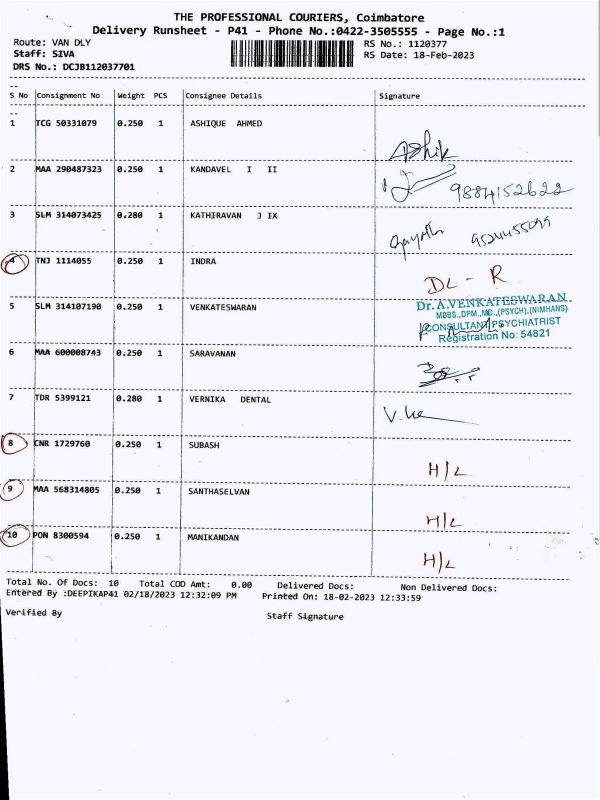 THE PROFESSIONAL COURIERS, Coimbatore
Delivery Runsheet - P41 - Phone No.:0422-3505555 - Page No.:1
Route: VAN DLY RS No.: 1120377
Staff: SIVA RS Date: 18-Feb-2023
DRS No.: DCJB112037701
S No Consignment No Weight PCS Consignee Details Signature
1 TCG 50331079 0.250 1 ASHIQUE AHMED
Ashik
2 MAA 290487323 0.250 1 KANDAVEL I II
9884152622
3 SLM 314073425 0.280 1 KATHIRAVAN J IX
4 TNJ 1114055 0.250 1 INDRA
DL - R
5 SLM 314107190 0.250 1 VENKATESWARAN
Dr. A.VENKATESWARAN
MBBS.,DPM.,MD.,(PSYCH),(NIMHANS)
CONSULTANT PSYCHIATRIST
Registration No: 54821
6 MAA 600008743 0.250 1 SARAVANAN
7 TDR 5399121 0.280 1 VERNIKA DENTAL
8 CNR 1729760 0.250 1 SUBASH
H/L
9 MAA 568314805 0.250 1 SANTHASELVAN
H/L
10 PON 8300594 0.250 1 MANIKANDAN
H/L
Total No. Of Docs: 10 Total COD Amt: 0.00 Delivered Docs: Non Delivered Docs:
Entered By :DEEPIKAP41 02/18/2023 12:32:09 PM Printed On: 18-02-2023 12:33:59
Verified By Staff Signature